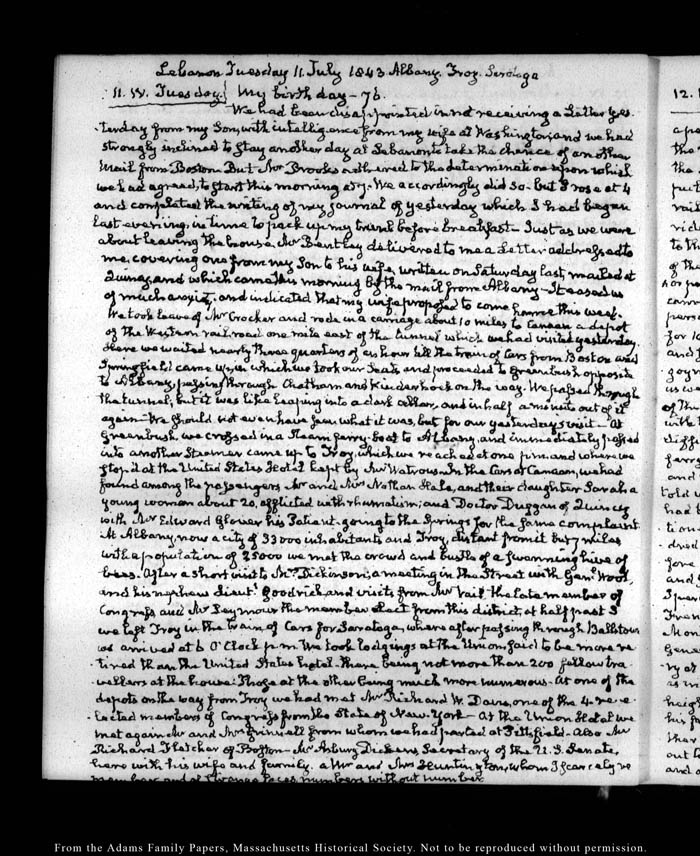 Lebanon Tuesday 11. July 1843. Albany. Troy. Saratoga
11. IV. Tuesday. My birth day — 76.
We had been disappointed in not receiving a Letter yes-
terday from my Son, with intelligence from my wife at Washington, and we had
strongly inclined to stay another day at Lebanon to take the chance of another
Mail from Boston. But Mr Brooks adhered to the determination upon which
we had agreed, to start this morning at 7. We accordingly did so. but I rose at 4
and completed the writing of my journal of yesterday which I had began
last evening, in time to pack up my trunk before breakfast. Just as we were
about leaving the house, Mr Bentley delivered to me a Letter addressed to
me, covering one from my Son to his wife, written on Saturday last, mailed at
Quincy, and which came this morning by the mail from Albany. It eased us
of much anxiety, and indicated that my wife proposed to come home this week.
We took leave of Mr Crocker and rode in a carriage about 10 miles to Canaan a depot
of the Western railroad one mile east of the tunnel which we had visited yesterday.
Here we waited nearly three quarters of an hour till the train of Cars from Boston and
Springfield came up, in which we took our Seats and proceeded to Greenbush opposite
to Albany, passing through Chatham and Kinderhook on the way. We passed through
the tunnel, but it was like leaping into a dark cellar, and in half a minute out of it
again. We should not even have seen what it was, but for our yesterday's visit — At
Greenbush we crossed in a steam ferry-boat to Albany, and immediately passed
into another Steamer came up to Troy, which we reached at one p.m. and where we
stop'd at the United States Hotel kept by Mr Watrous. In the Cars at Canaan, we had
found among the passengers Mr and Mrs Nathan Hale, and their daughter Sarah a
young woman about 20, afflicted with rhumatism; and Doctor Duggan of Quincy
with Mr Edward Glover his Patient, going to the Springs for the same complaint.
At Albany, now a city of 33000 inhabitants and Troy, distant from it but 7 miles
with a population of 25000 we met the crowd and bustle of a swarming hive of
bees. After a short visit to Mr Dickinson, a meeting in the Street with Genl Wool,
and his nephew Lieut. Goodrich and visits from Mr Vail the late member of
Congress and Mr Seymour the member elect from this district, at half past 3
we left Troy in the train of Cars for Saratoga, where after passing through Ballstown
we arrived at 6 O'Clock p.m. We took lodgings at the Union, said to be more re-
tired than the United States hotel. There being not more than 200 fellow tra-
vellers at the house. Those at the other being much more numerous. At one of the
depots on the way from Troy we had met Mr Richard W. Davis, one of the 4 re-e-
lected members of Congress from the State of New-York — At the Union Hotel we
met again Mr and Mrs Grinnell from whom we had parted at Pittsfield. Also Mr
Richard Fletcher of Boston — Mr Asbury Dickens, Secretary of the U.S. Senate,
here with his wife and family. a Mr and Mrs Huntington, whom I scarcely re-
member and of strange faces numbers without number.
12.
From the Adams Family Papers, Massachusetts Historical Society. Not to be reproduced without permission.